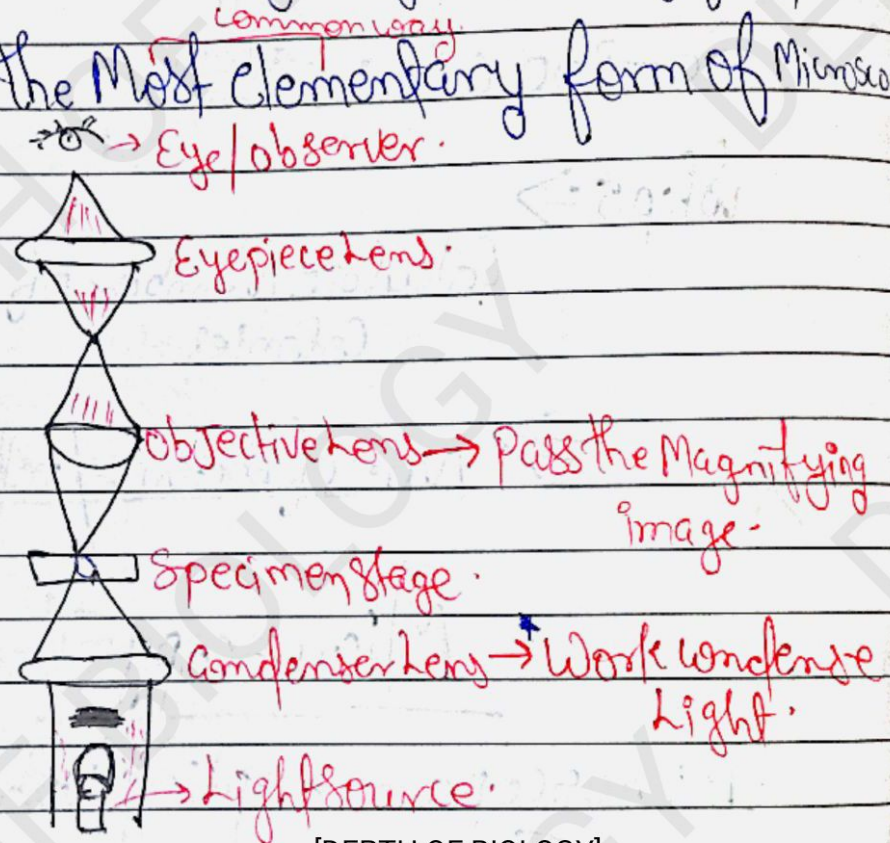 common way.
the Most elementary form of Microsco
→ Eye/observer.
Eyepiece Lens.
Objective Lens → Pass the Magnifying
image.
Specimen Stage.
Condenser Lens → Work condense
Light.
→ Light Source.
[DEPTH OF BIOLOGY]